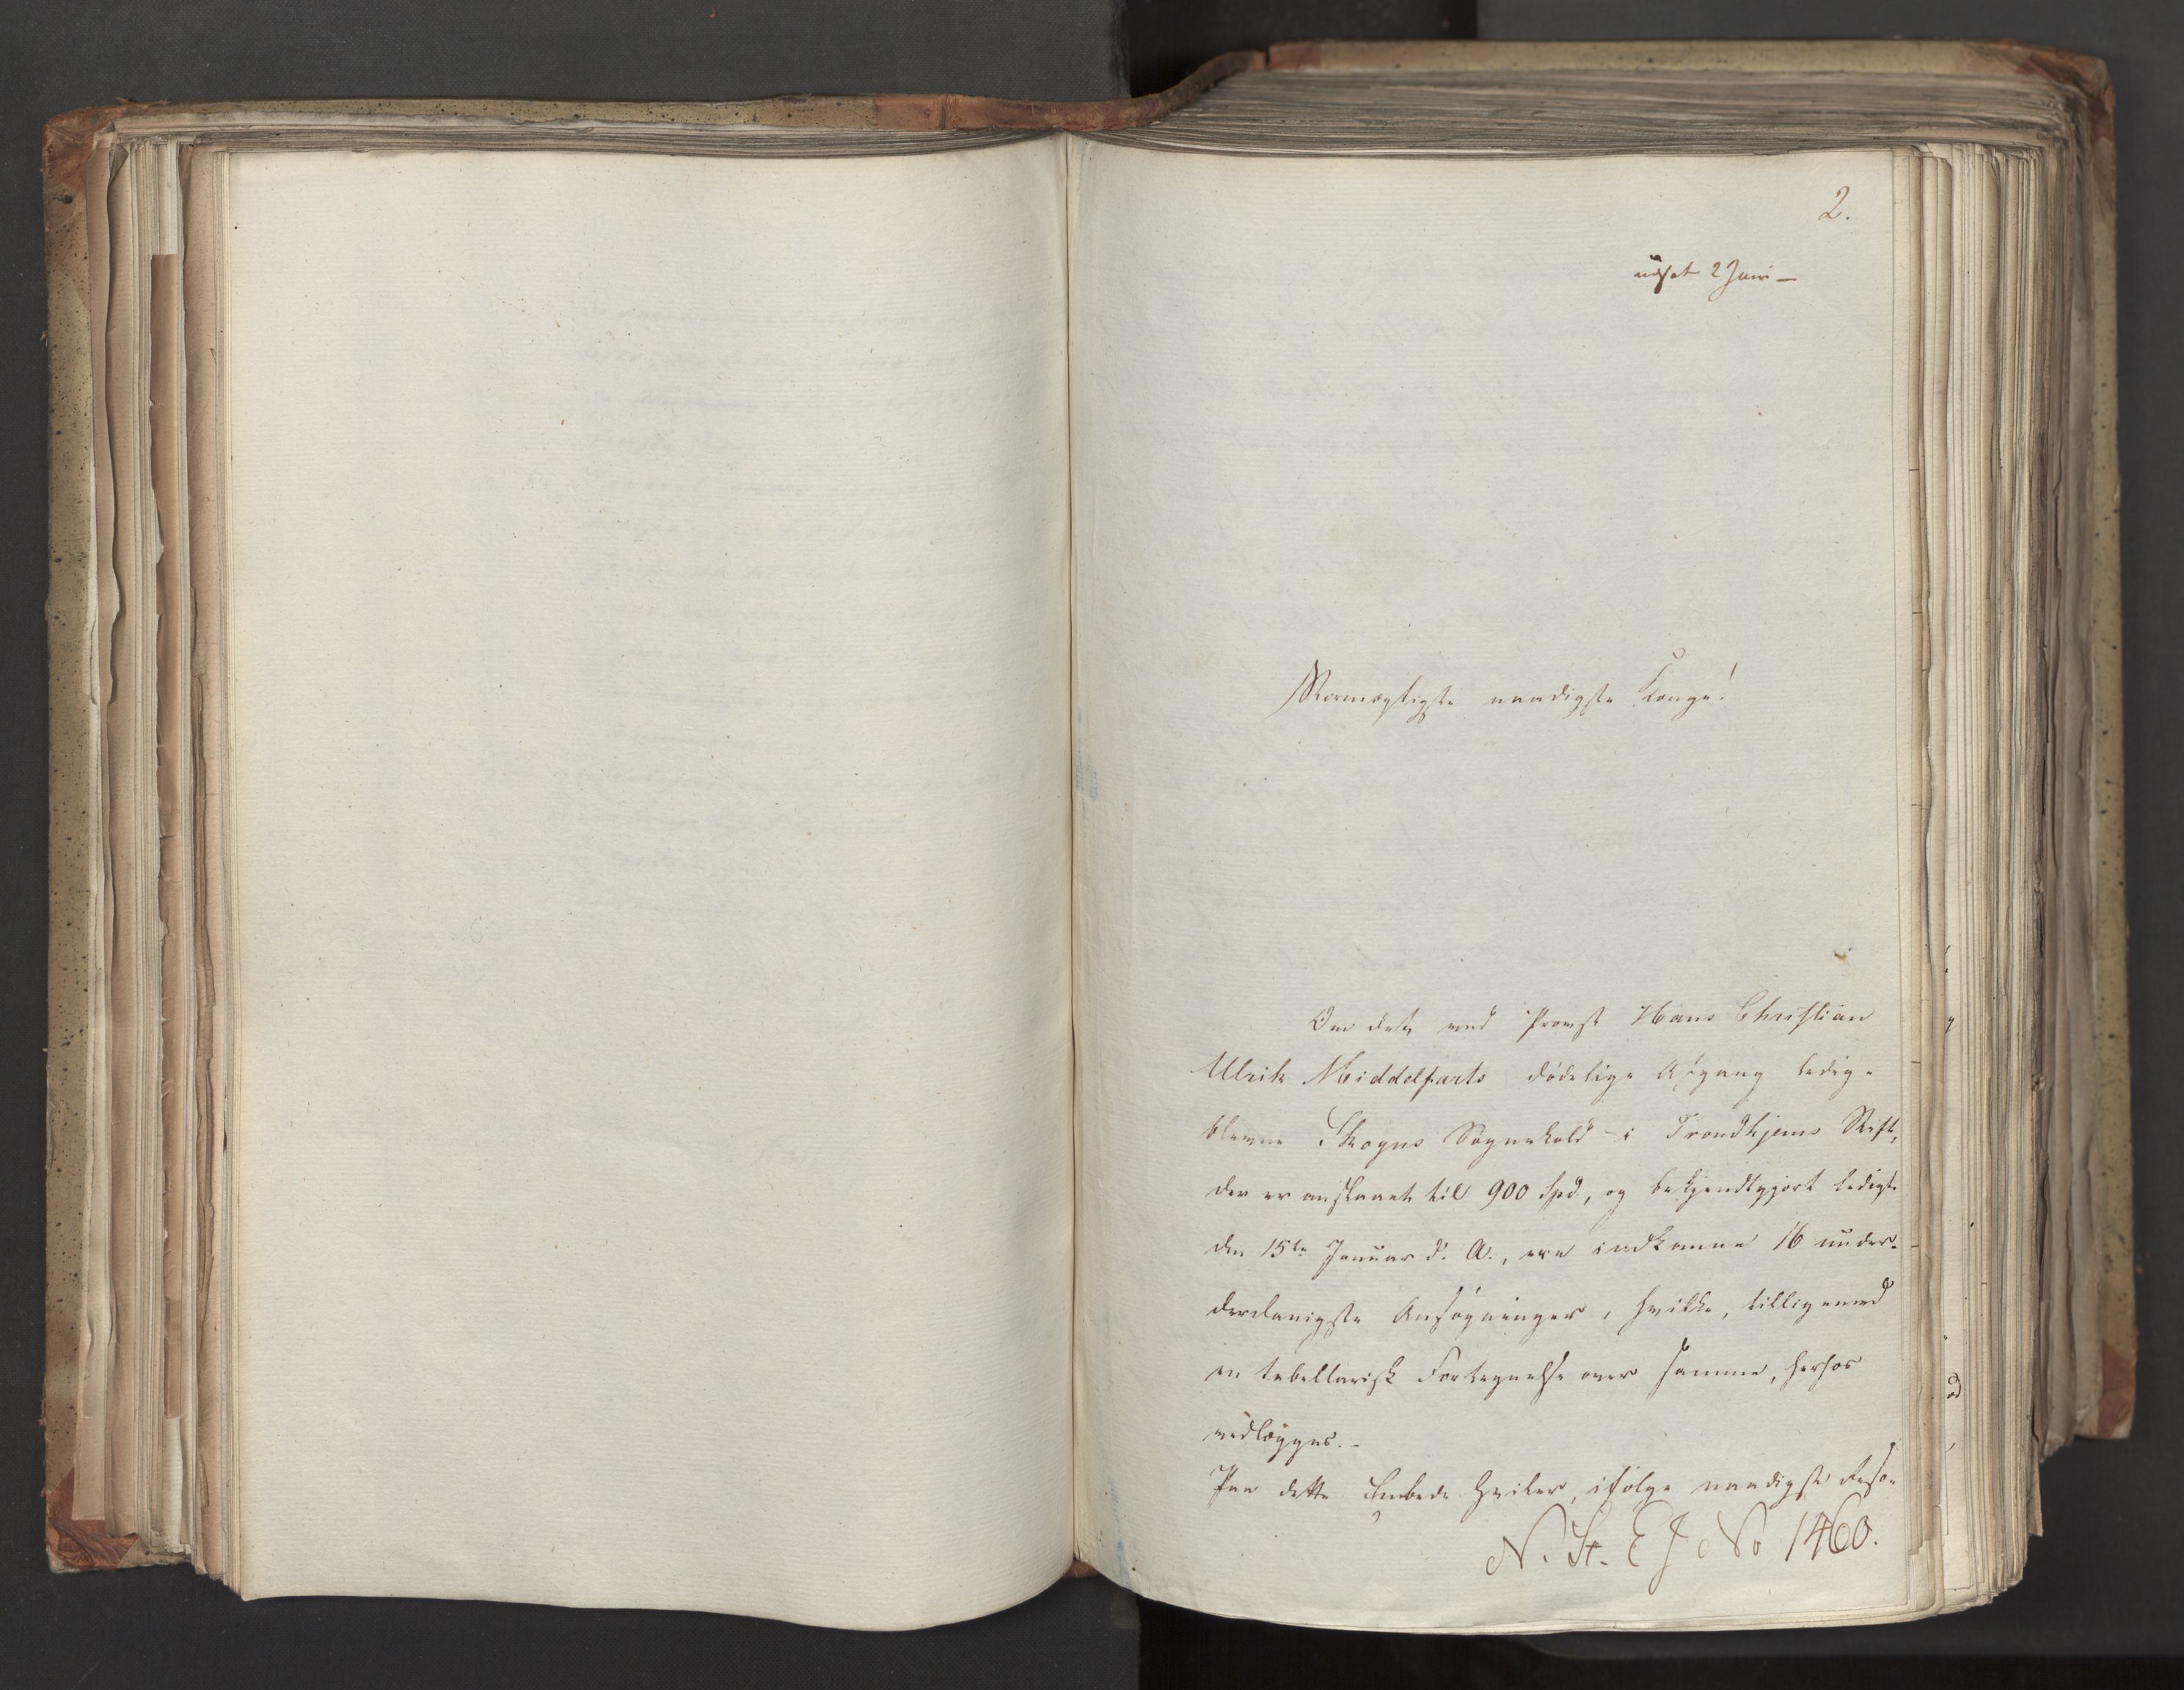 2.
udsat 2 Juni –
Stormægtigste naadigste Konge!
Om det, ved Provst Hans Christian
Ulrik Middelfarts dødelige Afgang ledig-
blevne Skogns Sognekald i Trondhjems Stift,
der er anslaaet til 900 Spd, og bekjendtgjort ledigt
den 15de Januar d. A., ere indkomne 16 under-
danigste Ansøgninger, hvilke, tilligemed
en tabellarisk Fortegnelse over samme, hoshos
vedlægges. -
Paa dette Embede hviler, ifølge naadigst Reso-
N. St. E J No 1460.